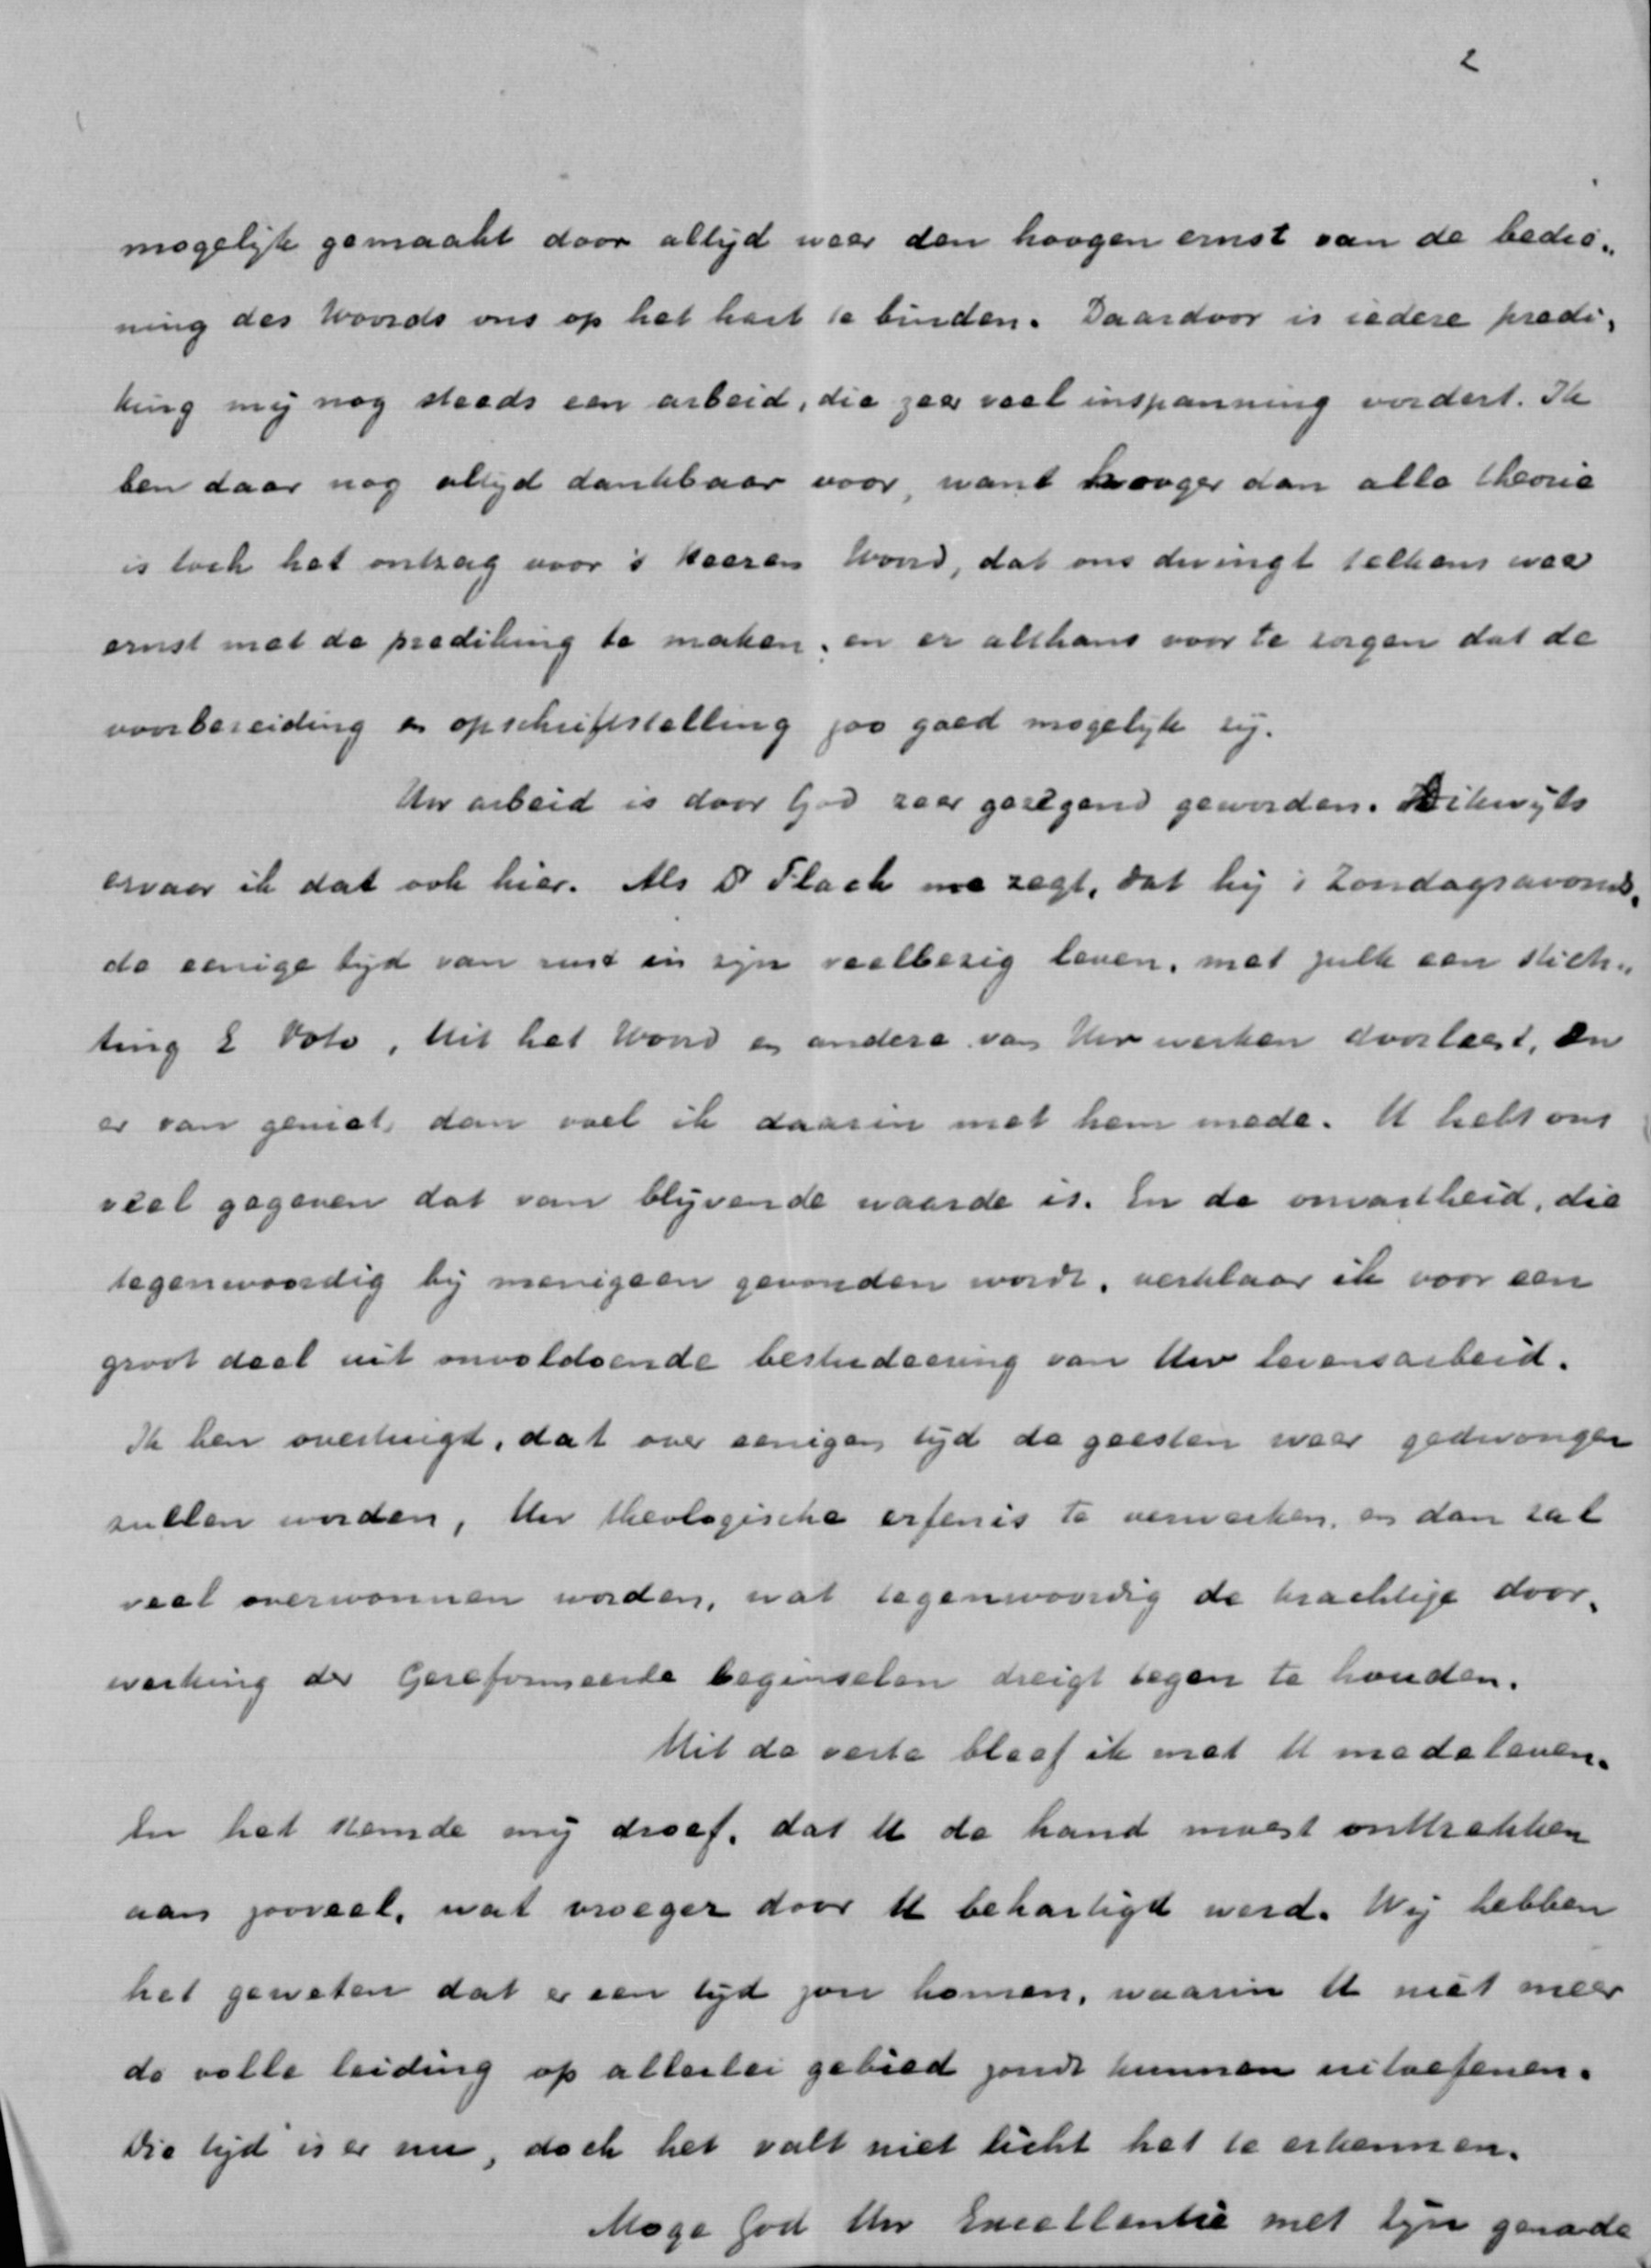 2
mogelijk gemaakt door altijd weer den hoogen ernst van de bedie„
ning des Woords ons op het hart te binden. Daardoor is iedere predi„
king mij nog steeds een arbeid, die zeer veel inspanning vordert. Ik
ben daar nog altijd dankbaar voor, want hooger dan alle theorie
is toch het ontzag voor 's Heeren Woord, dat ons dwingt telkens weer
ernst met de prediking te maken, en er althans voor te zorgen dat de
voorbereiding en opschriftstelling zoo goed mogelijk zij.
Uw arbeid is door God zeer gezegend geworden. Dikwijls
ervaar ik dat ook hier. Als Dr Flach me zegt, dat hij 's Zondagsavonds,
de eenige tijd van rust in zijn veelbezig leven, met zulk een stich„
ting E Voto, Uit het Woord en andere van Uw werken doorleest, en
er van geniet, dan voel ik daarin met hem mede. U hebt ons
veel gegeven dat van blijvende waarde is. En de onvastheid, die
tegenwoordig bij menigeen gevonden wordt, verklaar ik voor een
groot deel uit onvoldoende bestudeering van Uw levensarbeid.
Ik ben overtuigd, dat over eenigen tijd de geesten weer gedwongen
zullen worden, Uw theologische erfenis te verwerken, en dan zal
veel overwonnen worden, wat tegenwoordig de krachtige door„
werking der Gereformeerde beginselen dreigt tegen te houden.
Uit de verte bleef ik met U medeleven.
En het stemde mij droef, dat U de hand moest onttrekken
aan zooveel, wat vroeger door U behartigd werd. Wij hebben
het geweten dat er een tijd zou komen, waarin U niet meer
de volle leiding op allerlei gebied zoudt kunnen uitoefenen.
Die tijd is er nu, doch het valt niet licht het te erkennen.
Moge God Uw Excellentie met Zijn genade